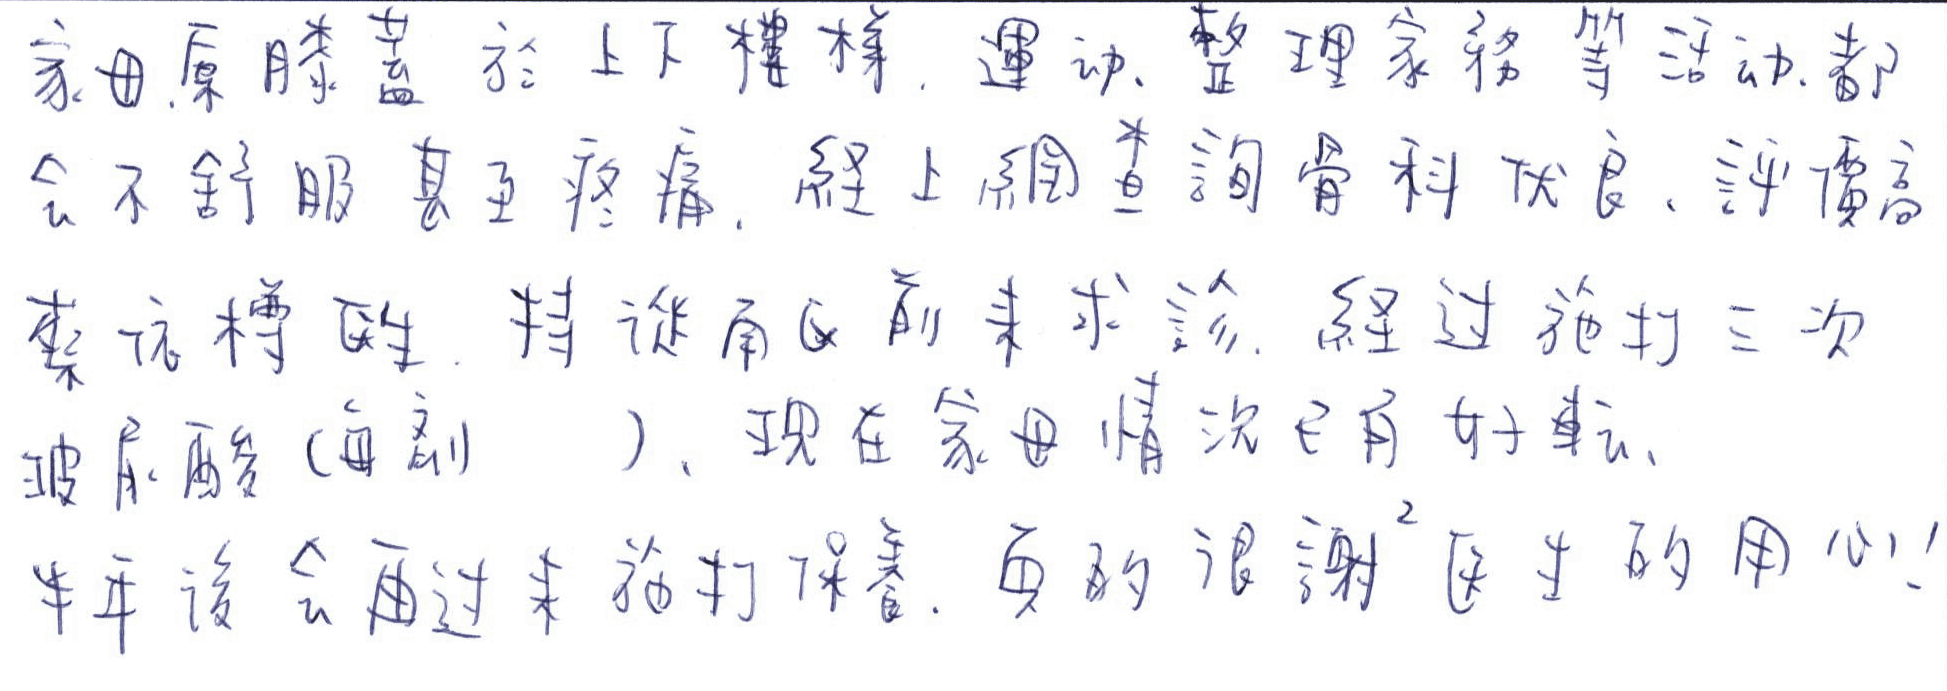 家母原膝蓋於上下樓梯、運动、整理家務等活动、都
会不舒服甚至疼痛、経上網查詢骨科优良、評價高
蔡依樽医生、特從南区前来求診、経过施打三次
玻尿酸(每剂　　)、現在家母情況已有好転、
半年後会再过来施打保養、真的很謝²医生的用心!